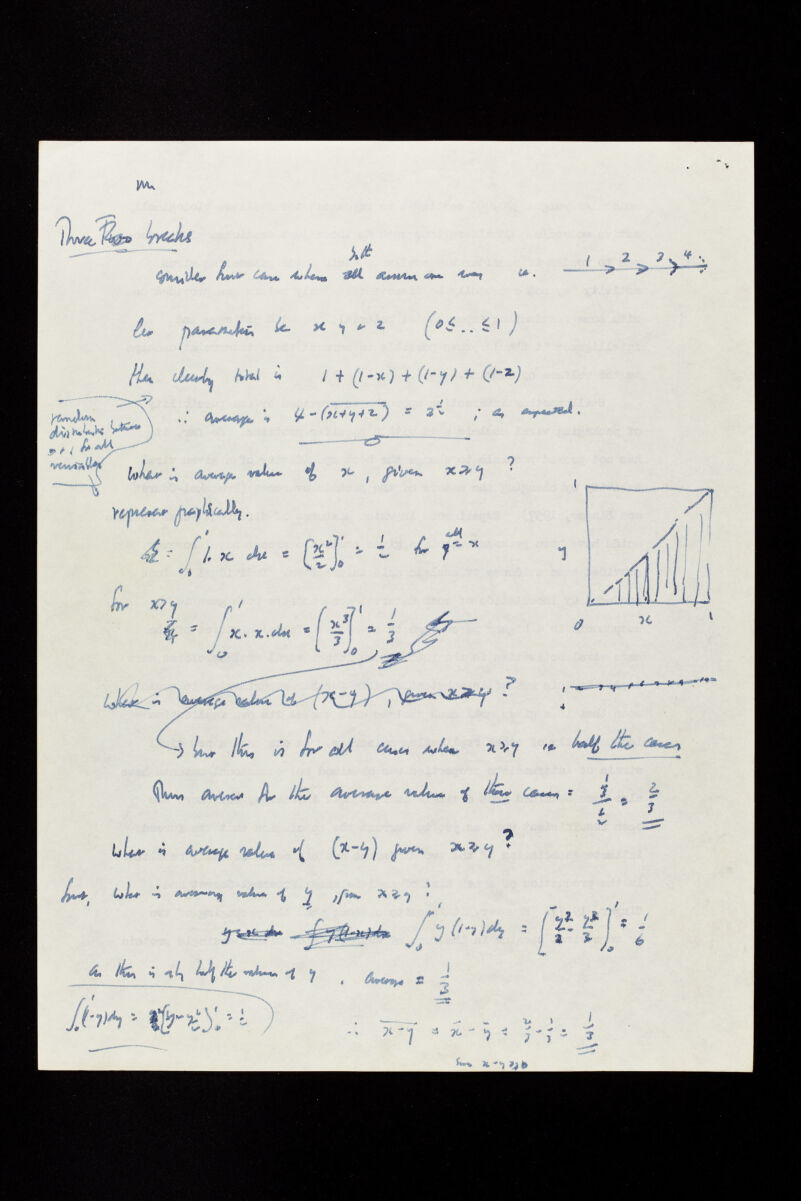 Three breaks
consider first case where all same way i.e. 1 2 3 4
let parameters be x y & z (0 ≤ .. ≤ 1)
then clearly total is 1 + (1-x) + (1-y) + (1-z)
∴ average is 4 - (x+y+z) = 2½ ; as expected.
random
distribution between
0 & 1 for all
variables
what is average value of x, given x ≥ y ?
represent graphically.
= ∫₀¹ 1. x dx = [x²/2]₀¹ = ½ for all y x
1
y
0 x 1
for x ≥ y
= ∫₀¹ x. x. dx = [x³/3]₀¹ = 1/3
what is average value of (x-y), given x ≥ y ?
but this is for all cases when x ≥ y i.e. half the cases
Thus answer for the average value of these cases = 1/3 / ½ = 2/3
what is average value of (x-y) given x ≥ y ?
first, what is average value of y, given x ≥ y ?
∫₀¹ y (1-y) dy = [y²/2 - y³/3]₀¹ = 1/6
as this is only half the values of y, average = 1/3
∫₀¹ (1-y) dy = [y - y²/2]₀¹ = ½
∴ x-y = x - y = 2/3 - 1/3 = 1/3
x - y ≥ 0